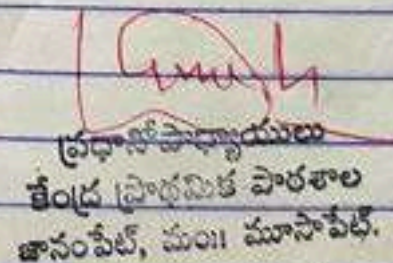 ప్రధానోపాధ్యాయులు
కేంద్ర ప్రాథమిక పాఠశాల
జానంపేట్, మం॥ మూసాపేట్.